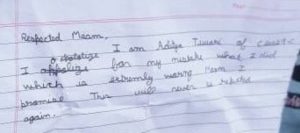 Respected Maam,
I am Aditya Tiwari of class
apologize
I for my mistake what I did
which is extremly wrong Mam I
promise This will never is repeted
again.